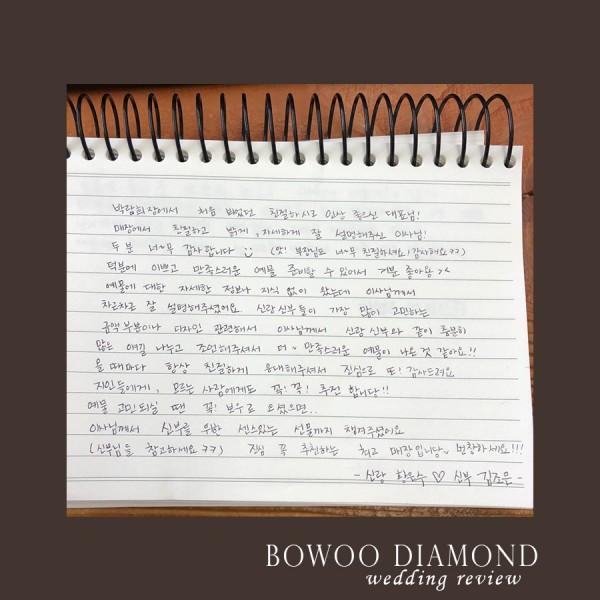 박람회장에서 처음 뵈었던 친절하시고 인상 좋으신 대표님!
매장에서 친절하고 밝게, 자세하게 잘 설명해주신 이사님!
두 분 너~무 감사합니다 (앗! 부장님도 너~무 친절하세요, 감사해요 ㅋㅋ)
덕분에 이쁘고 만족스러운 예물 준비할 수 있어서 기분 좋아용 ><
예물에 대한 자세한 정보나 지식 없이 왔는데 이사님께서
차근차근 잘 설명해주셨어요 신랑 신부들이 가장 많이 고민하는
금액 부분이나 디자인 관련해서 이사님께서 신랑 신부와 같이 충분히
많은 얘길 나누고 조언해주셔서 더~ 만족스러운 예물이 나온 것 같아요!!
올 때마다 항상 친절하게 응대해주셔서 진심으로 또! 감사드려요
지인들에게, 모르는 사람에게도 꼭! 꼭! 추천 합니다!!
예물 고민되실 땐 꼭! 보우로 오셨으면..
이사님께서 신부를 위한 센스있는 선물까지 챙겨주셨어요
(신부님들 참고하세요 ㅋㅋ) 진심 꼭 추천하는 최고 매장입니당~ 번창하세요!!!
- 신랑 황윤수 ♡ 신부 김조은 -
BOWOO DIAMOND
wedding review